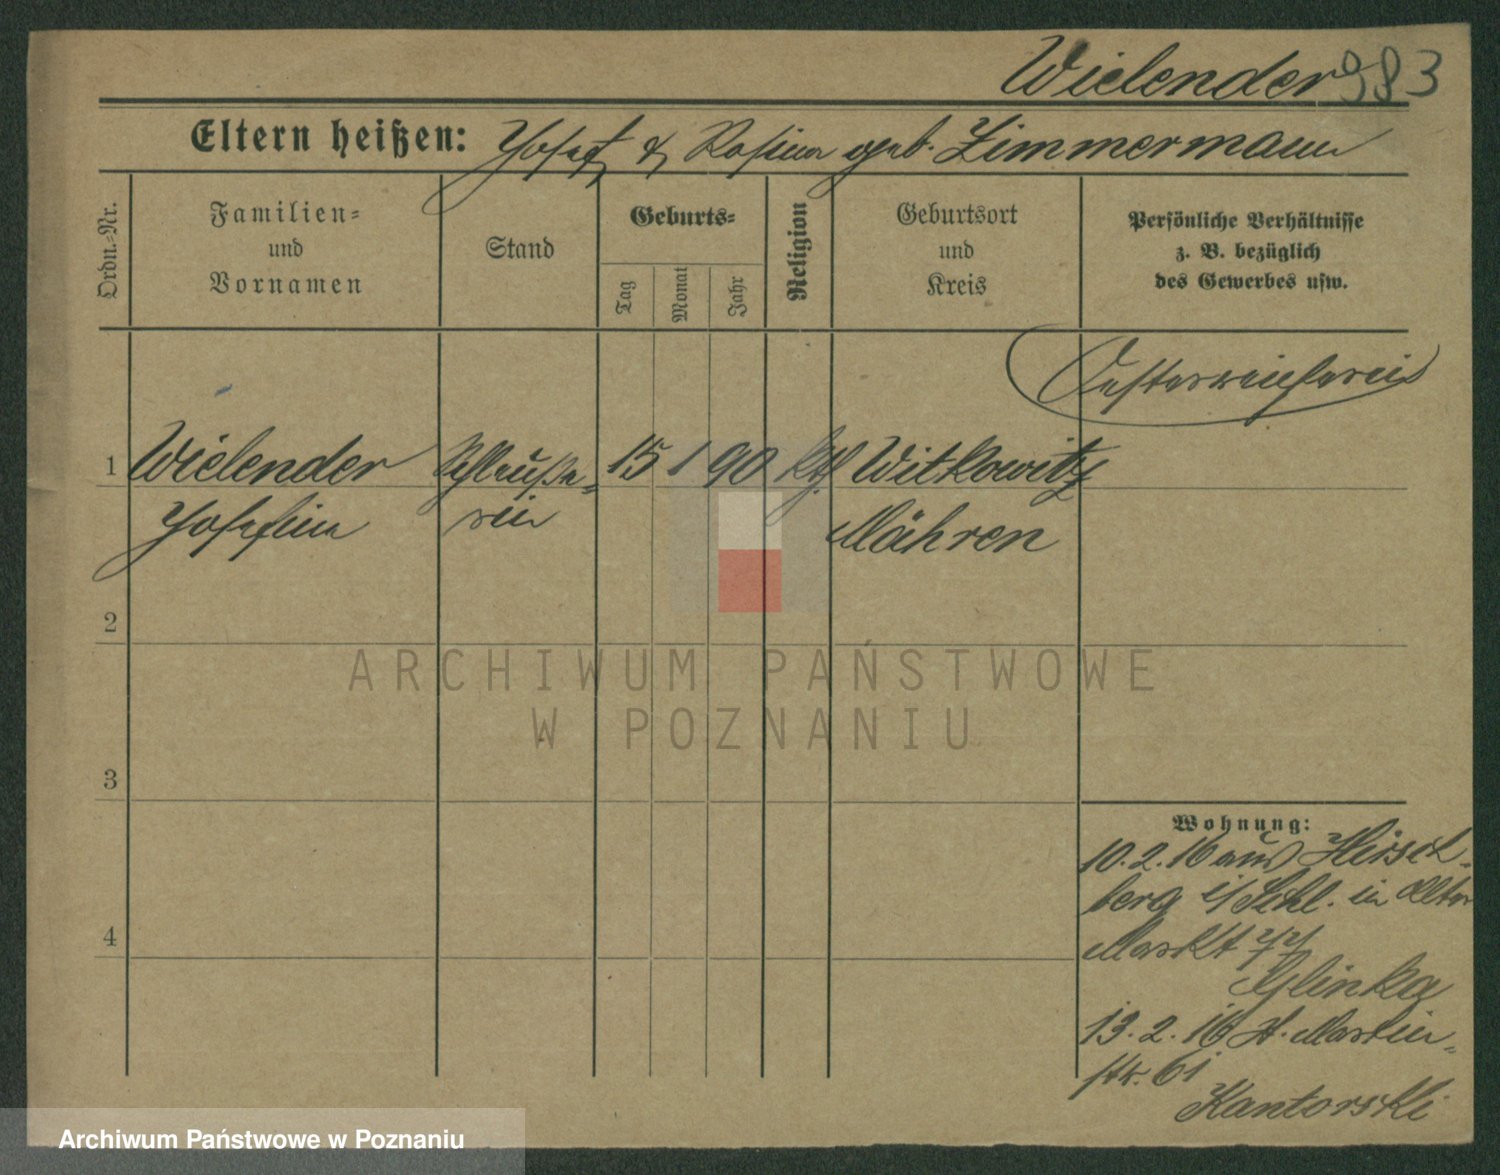 Wielender 983
Eltern heißen: Josef & Rosina geb. Zimmermann
Ordn.-Nr.
Familien-
und
Vornamen
Stand
Geburts-
Tag
Monat
Jahr
Religion
Geburtsort
und
Kreis
Persönliche Verhältnisse
z. B. bezüglich
des Gewerbes usw.
Oesterreicherin
1 Wielender 15 1 90 ktl Witkowitz
Josefine rin Mähren
2
3
4
ARCHIWUM PAŃSTWOWE
W POZNANIU
Wohnung:
10.2.16 aus Hirsch-
berg i/Schl. in Alter
Markt 77
Glinka
13.2.16 St. Martin-
str. 61
Kantorski
Archiwum Państwowe w Poznaniu